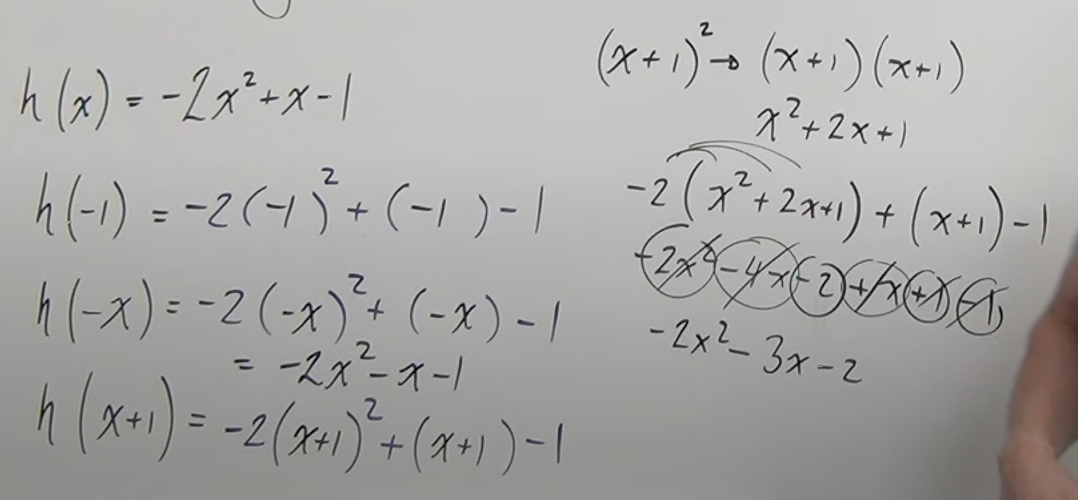 h(x) = -2x²+x-1
h(-1) = -2(-1)²+(-1)-1
h(-x) = -2(-x)²+(-x)-1
= -2x²-x-1
h(x+1) = -2(x+1)²+(x+1)-1
(x+1)²→(x+1)(x+1)
x²+2x+1
-2(x²+2x+1)+(x+1)-1
-2x²-4x-2+x+1-1
-2x²-3x-2